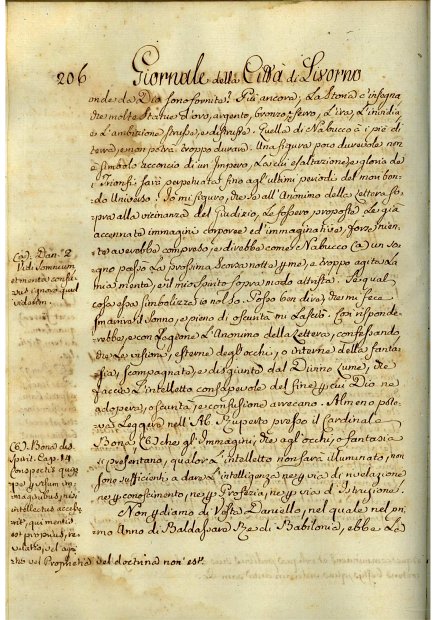 206 Giornale della Città di Livorno
onde da Dio sono fornite? Più ancora, La Storia c'insegna
che molte Statue d'oro, argento, bronzo, ferro, L'ira, L'invidia
e L'ambizione strusse, e distrusse. Quella di Nabucco à i piè di
terra, e non potrà troppo durare. Una figura poco durevole non
è simbolo acconcio di un Impero, La cui esaltazione, e gloria de
i Trionfi sarà perpetuata fino agl'ultimi periodi del moribon-
do Universo. Io mi figuro, che se all'Anonimo della Lettera so-
pra alla vicinanza del Giudizio, Le fossero proposte Le già
accennate immagini corporee ed immaginative, forse nien-
te averebbe compreso, e direbbe come Nabucco (a) un so-
gno posso La prossima scorsa notte, e troppo agitò La
mia mente, e il mio spirito sopra modo attristò.
cosa esso simbolizza io nol so. Posso ben dire, che mi fece
smarrire il sonno, e pieno di oscurità mi Lasciò. Così risponde-
rebbe, e con ragione L'Anonimo della Lettera, confessando
che Le visioni, esterne degl'occhi, o interne della fanta-
sia, scompagnate, e disgiunte dal Divino Lume, che
faccia L'intelletto consapevole del fine, per cui Dio ne
adopera, oscurità, e confusione arrecano. Almeno pote-
va Leggere nell'Ab. Ruperto presso il Cardinale
Bona (b) che gl'Immagini, che agl'occhi, o fantasia
si presentano, qualora L'intelletto non sarà illuminato, non
sono sufficienti a dare L'intelligenza ne per via di rivelazione
ne per conoscimento, ne per Profezia, ne per via d'Istruzione.
Non però diamo di Vesta Daniello, nel quale nel pri-
mo Anno di Baldassare Re di Babilonia, ebbe La
(a) Dan. 2
Vidi Somnium,
et mente confu-
sus ignoro quid
viderim.
(b) Bona de
Cap. 14
Conspectus
visum
intellectus
qui mentis
est proprius, re-
velatio, vel
vel Prophetia vel doctrina non est.